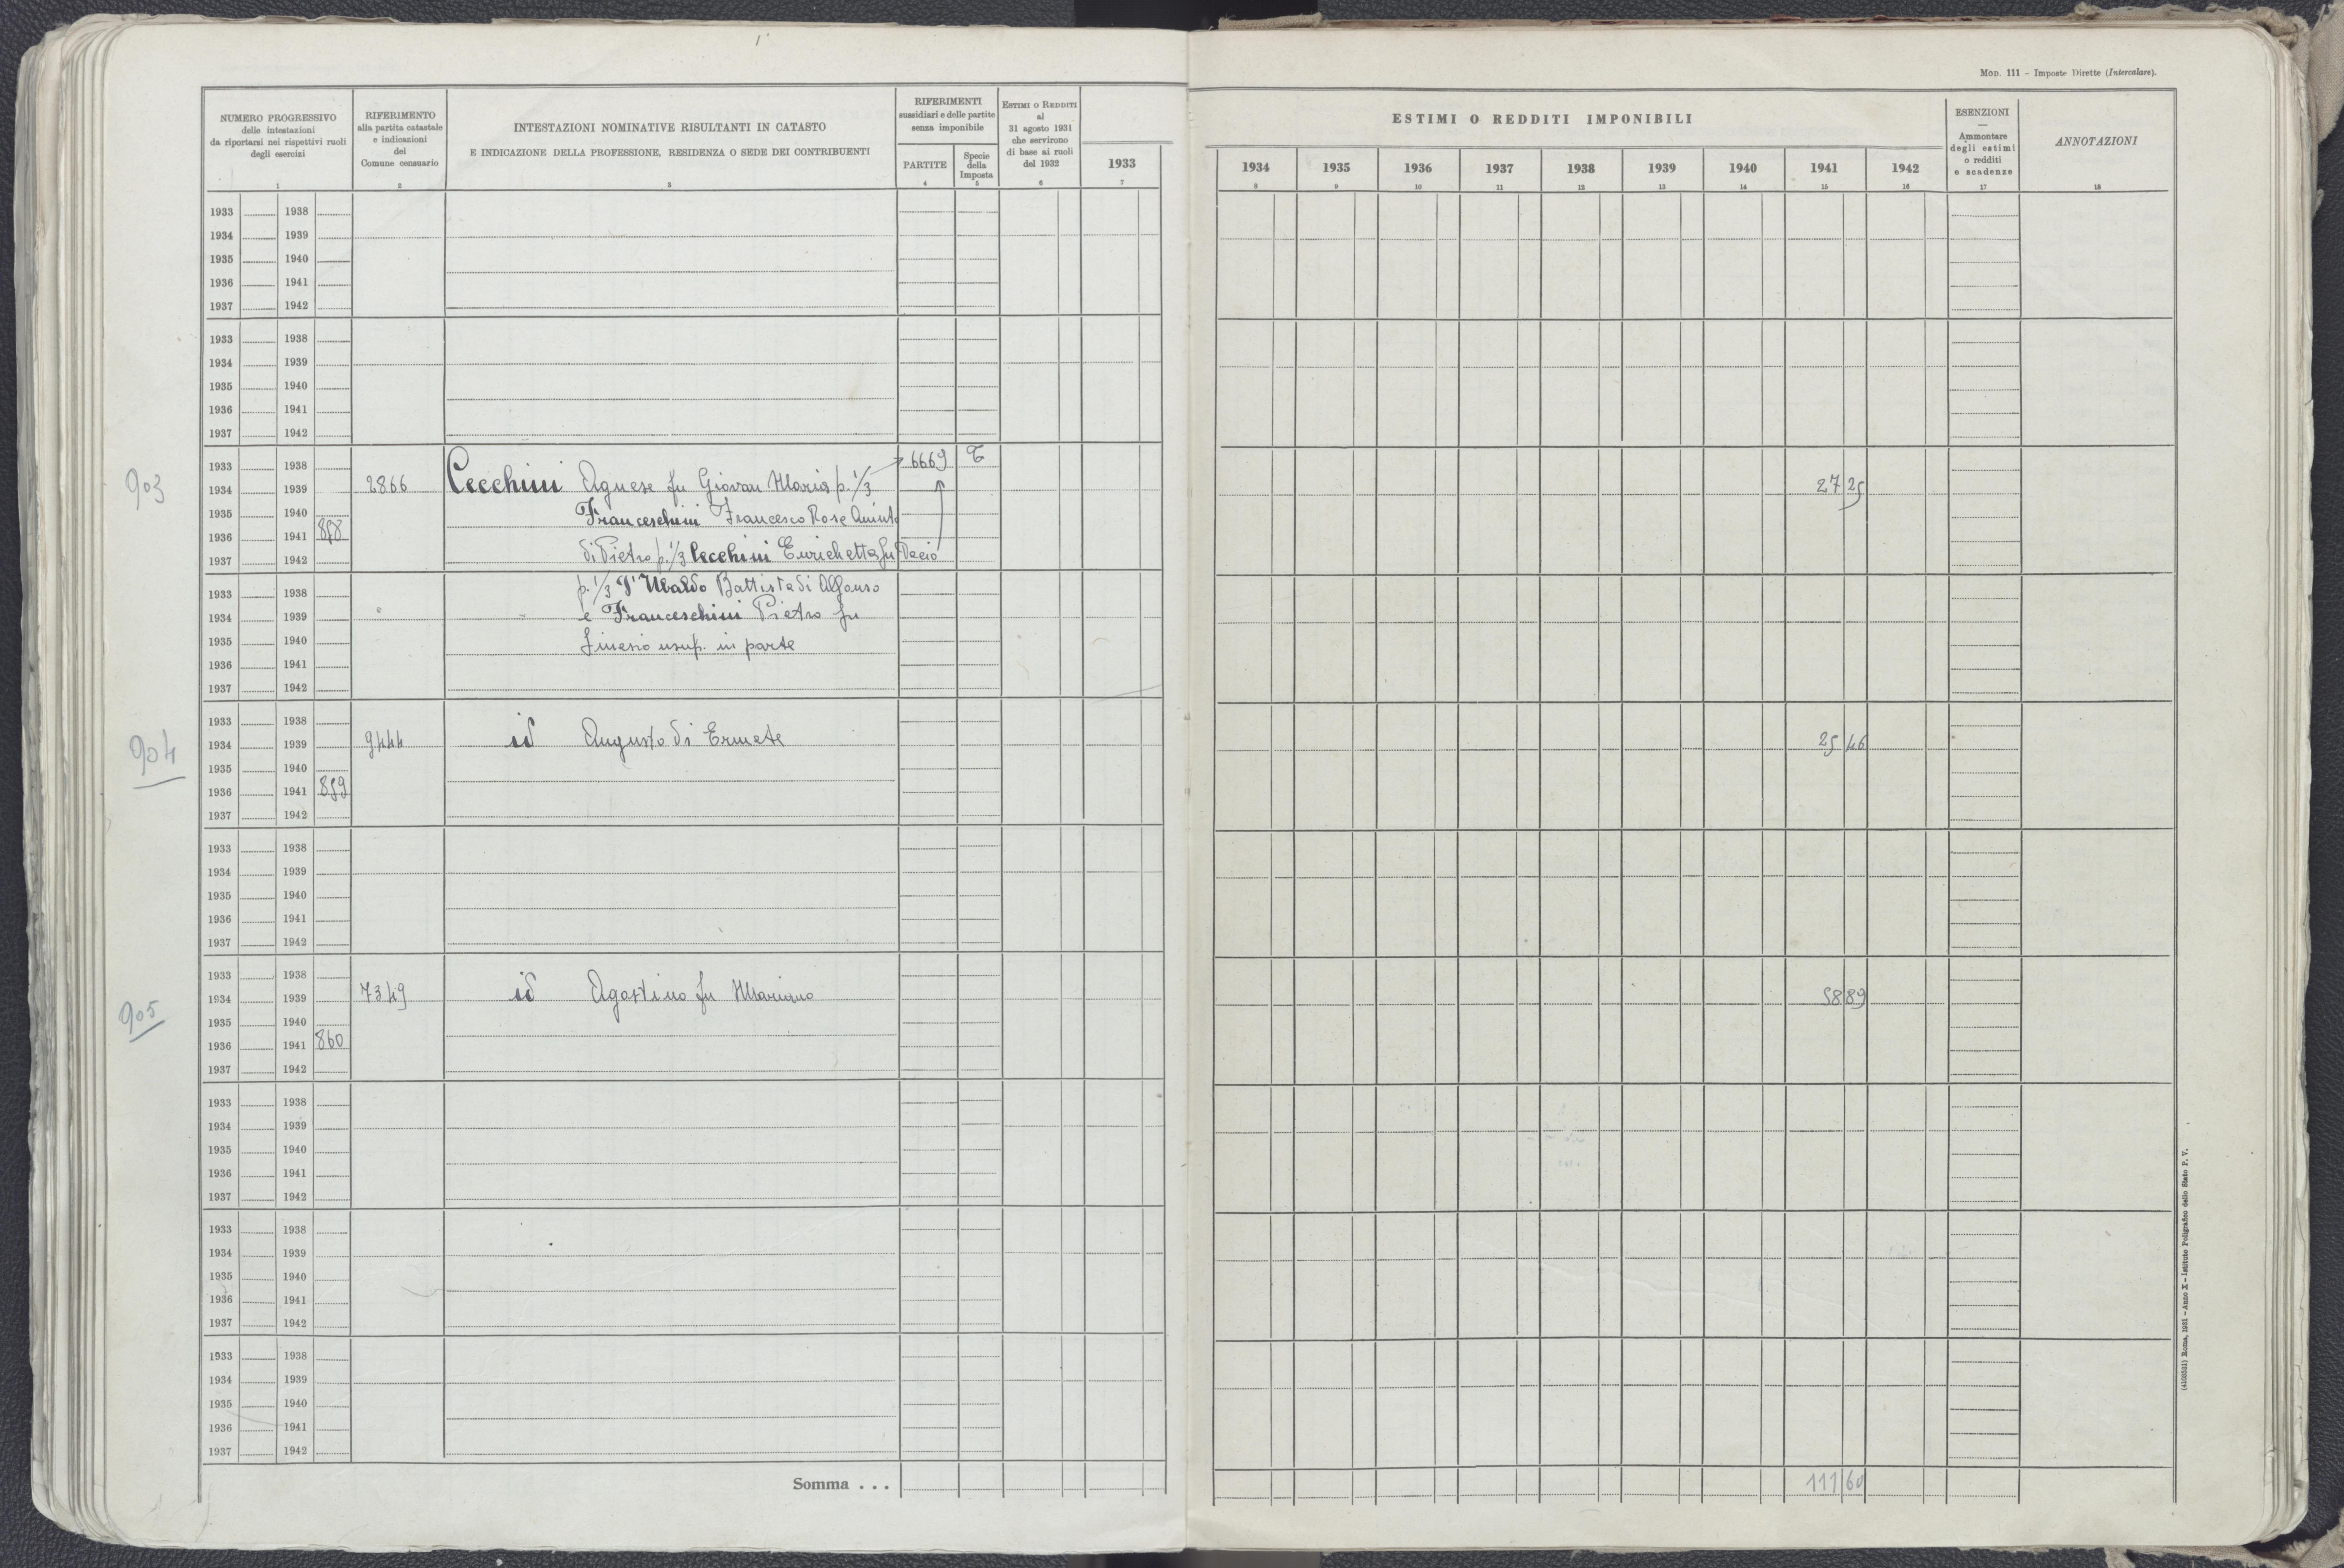 Mod. 111 – Imposte Dirette (Intercalare).
NUMERO PROGRESSIVO
delle intestazioni
da riportarsi nei rispettivi ruoli
degli esercizi
1
RIFERIMENTO
alla partita catastale
e indicazioni
del
Comune censuario
2
INTESTAZIONI NOMINATIVE RISULTANTI IN CATASTO
E INDICAZIONE DELLA PROFESSIONE, RESIDENZA O SEDE DEI CONTRIBUENTI
3
RIFERIMENTI
sussidiari e delle partite
senza imponibile
PARTITE
4
Specie
della
Imposta
5
Estimi o Redditi
al
31 agosto 1931
che servirono
di base ai ruoli
del 1932
6
1933
7
ESTIMI O REDDITI IMPONIBILI
1934 1935 1936 1937 1938 1939 1940 1941 1942
8 9 10 11 12 13 14 15 16
ESENZIONI
—
Ammontare
degli estimi
o redditi
e scadenze
17
ANNOTAZIONI
18
1933 1938
1934 1939
1935 1940
1936 1941
1937 1942
1933 1938
1934 1939
1935 1940
1936 1941
1937 1942
1933 1938 6669 T
903 1934 1939 2866 Cecchini Agnese fu Giovan Maria p. 1/3 27 25
1935 1940 Franceschini Francesco Rose Aminto
1936 1941 858
1937 1942 di Pietro p. 1/3 Cecchini Enrichetta fu Decio
1933 1938 p. 1/3 D'Ubaldo Battista di Alfonso
1934 1939 e Franceschini Pietro fu
1935 1940 Ginesio usuf. in parte
1936 1941
1937 1942
1933 1938
904 1934 1939 9444 id Augusto di Ermete 25 46
1935 1940
1936 1941 859
1937 1942
1933 1938
1934 1939
1935 1940
1936 1941
1937 1942
1933 1938
905 1934 1939 7349 id Agostino fu Mariano 58 89
1935 1940
1936 1941 860
1937 1942
1933 1938
1934 1939
1935 1940
1936 1941
1937 1942
1933 1938
1934 1939
1935 1940
1936 1941
1937 1942
1933 1938
1934 1939
1935 1940
1936 1941
1937 1942
Somma . . . 111 60
(4103531) Roma, 1931 – Anno X – Istituto Poligrafico dello Stato P. V.